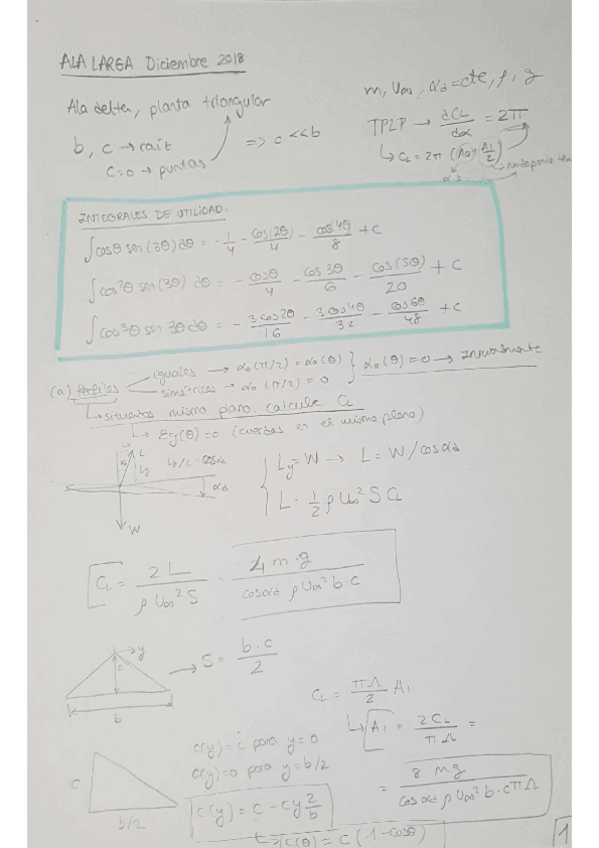 ALA LARGA Diciembre 2018
Ala delta, planta triangular
b, c → raiz
c=0 → puntas
=> c <<b
m, U∞, αd=cte, ρ, g
TPLP → dCL/dα = 2π
↳ CL = 2π (A0+A1/2)
INTEGRALES DE UTILIDAD:
∫cosθ sen(3θ)dθ = -1/4 - cos(2θ)/4 - cos(4θ)/8 + C
∫cos²θ sen(3θ) dθ = - cosθ/4 - cos3θ/6 - cos(5θ)/20 + C
∫cos³θ sen 3θ dθ = - 3cos2θ/16 - 3cos4θ/32 - cos6θ/48 + C
(a) Perfiles
iguales → α0(π/2) = α0(θ)
simétricos → α0(π/2) = 0
} α0(θ)=0 →
↳ situados mismo plano. Calcule CL
↳ Eg(θ)=0 (cuerdas en el mismo plano)
L
αd
W
Ly=W → L = W/cosαd
L = 1/2 ρ U∞² S CL
CL = 2L / ρ U∞² S = 4m·g / cosαd ρ U∞² b·c
y
c
b
→ S = b·c / 2
CL = πΛ/2 A1
↳ A1 = 2CL / πΛ =
= 8 mg / cosαd ρ U∞² b·cπΛ
c
b/2
c(y)=c para y=0
c(y)=0 para y=b/2
c(y) = c - cy 2/b
↳ c(θ) = c (1-cosθ)
1